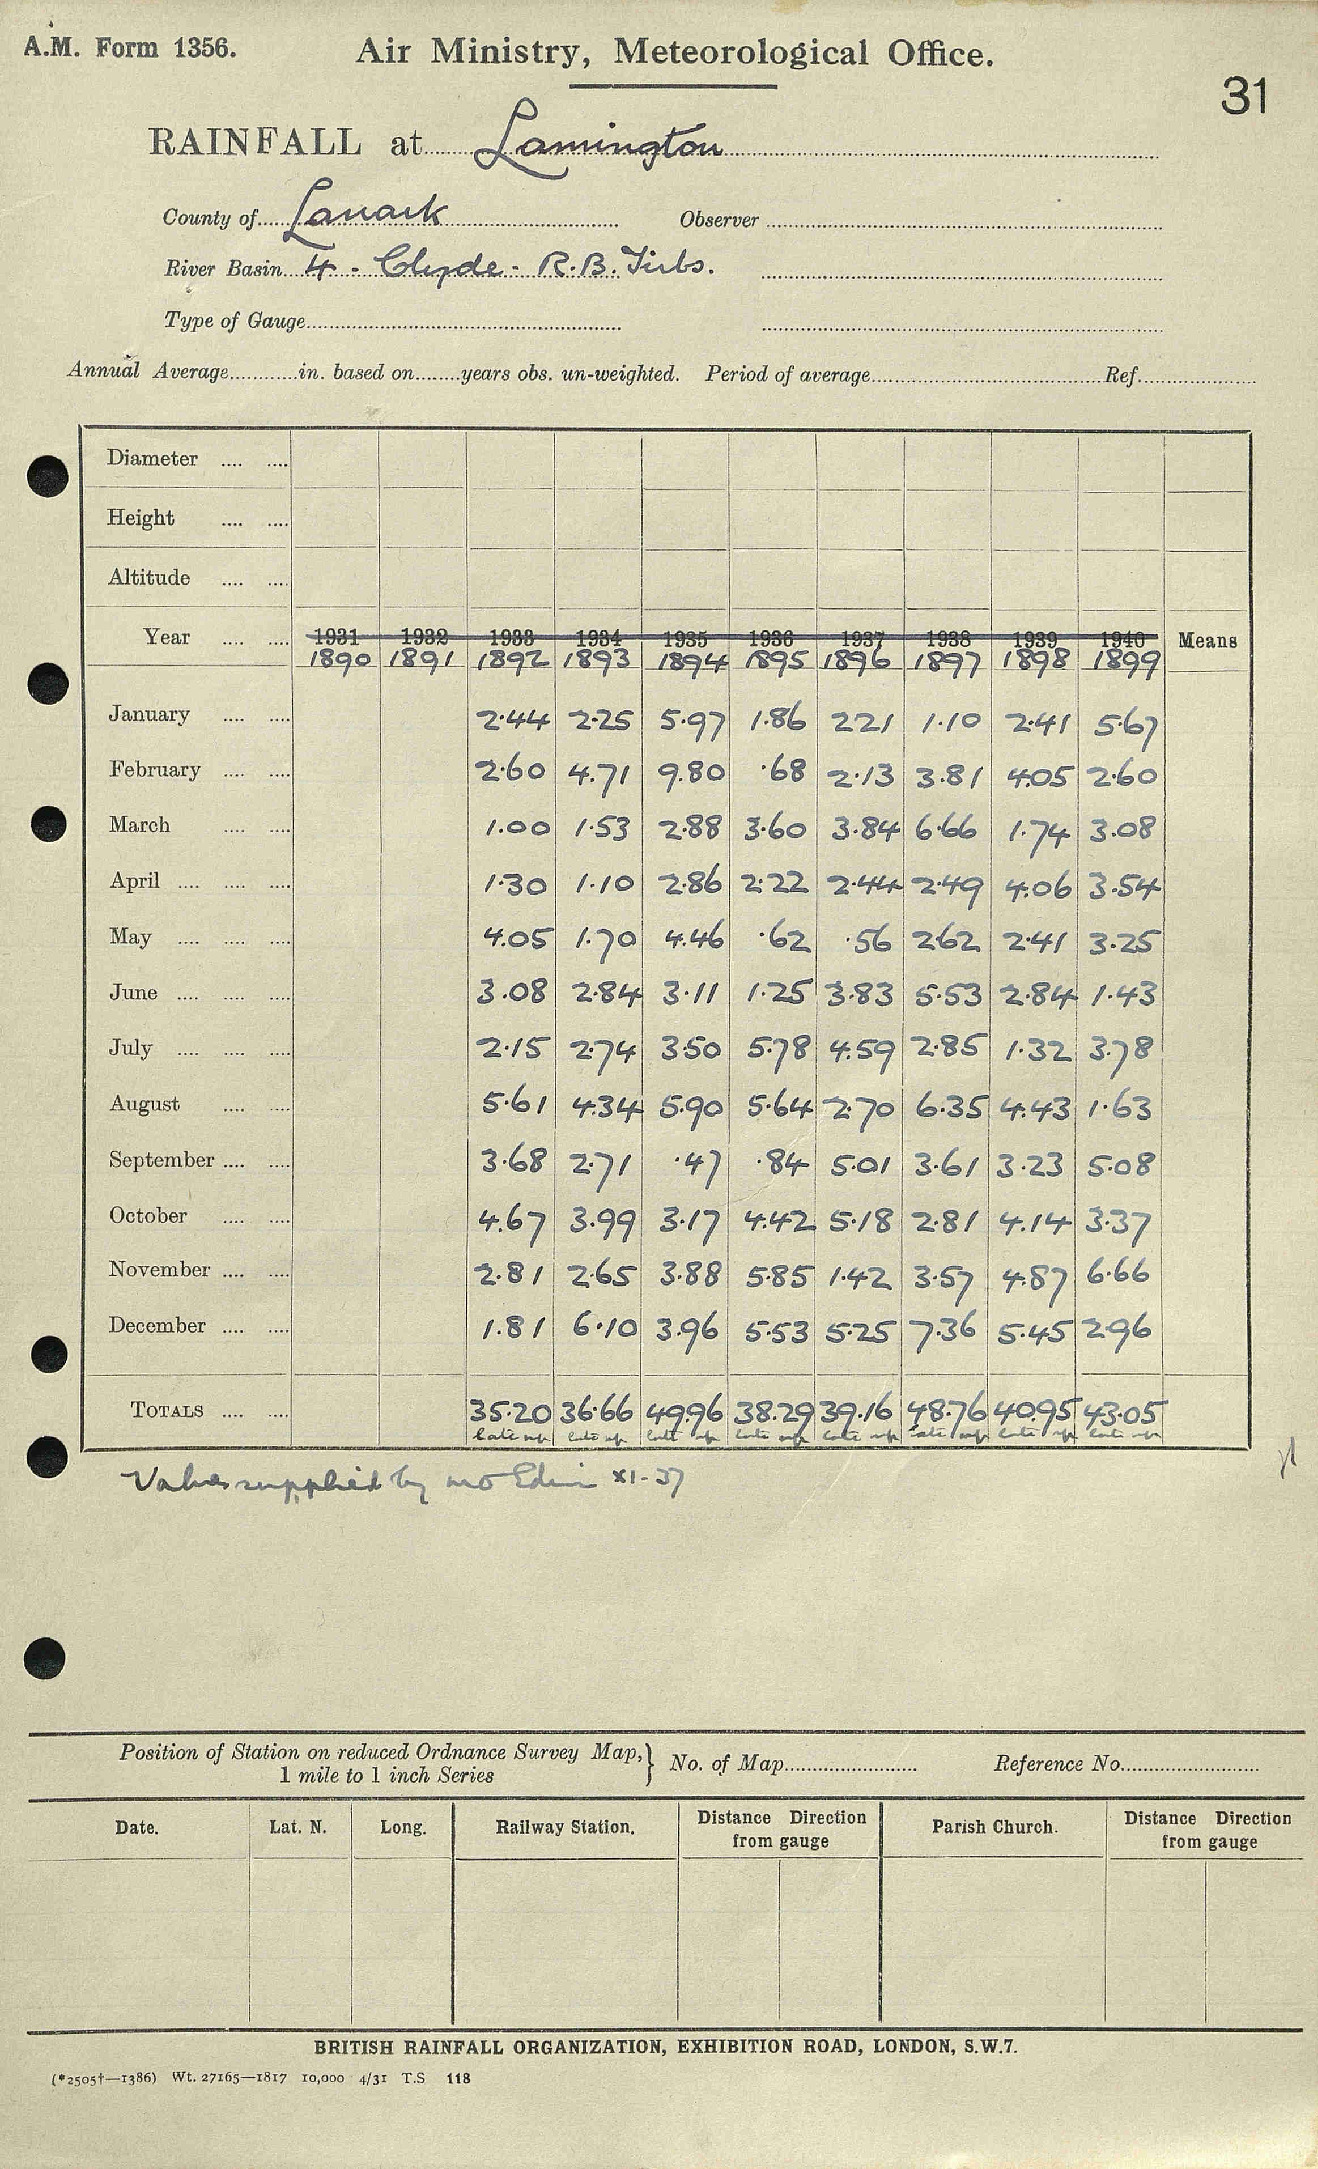 A.M. Form 1356.
Air Ministry, Meteorological Office.
31
RAINFALL at Lamington
County of Lanark Observer
River Basin 4 - Clyde - R.B. Tirbs.
Type of Gauge
Annual Average in. based on years obs. un-weighted. Period of average Ref.
Diameter
Height
Altitude
Year 1931 1932 1933 1934 1935 1936 1937 1938 1939 1940 Means
1890 1891 1892 1893 1894 1895 1896 1897 1898 1899
January 2.44 2.25 5.97 1.86 2.21 1.10 2.41 5.67
February 2.60 4.71 9.80 .68 2.13 3.81 4.05 2.60
March 1.00 1.53 2.88 3.60 3.84 6.66 1.74 3.08
April 1.30 1.10 2.86 2.22 2.44 2.49 4.06 3.54
May 4.05 1.70 4.46 .62 .56 2.62 2.41 3.25
June 3.08 2.84 3.11 1.25 3.83 5.53 2.84 1.43
July 2.15 2.74 3.50 5.78 4.59 2.85 1.32 3.78
August 5.61 4.34 5.90 5.64 2.70 6.35 4.43 1.63
September 3.68 2.71 .47 .84 5.01 3.61 3.23 5.08
October 4.67 3.99 3.17 4.42 5.18 2.81 4.14 3.37
November 2.81 2.65 3.88 5.85 1.42 3.57 4.87 6.66
December 1.81 6.10 3.96 5.53 5.25 7.36 5.45 2.96
TOTALS 35.20 36.66 49.96 38.29 39.16 48.76 40.95 43.05
Values supplied by MO Edin XI-37
Position of Station on reduced Ordnance Survey Map, } No. of Map Reference No.
1 mile to 1 inch Series
Date. Lat. N. Long. Railway Station. Distance Direction from gauge Parish Church. Distance Direction from gauge
BRITISH RAINFALL ORGANIZATION, EXHIBITION ROAD, LONDON, S.W.7.
(*2505†—1386) Wt. 27165—1817 10,000 4/31 T.S 118